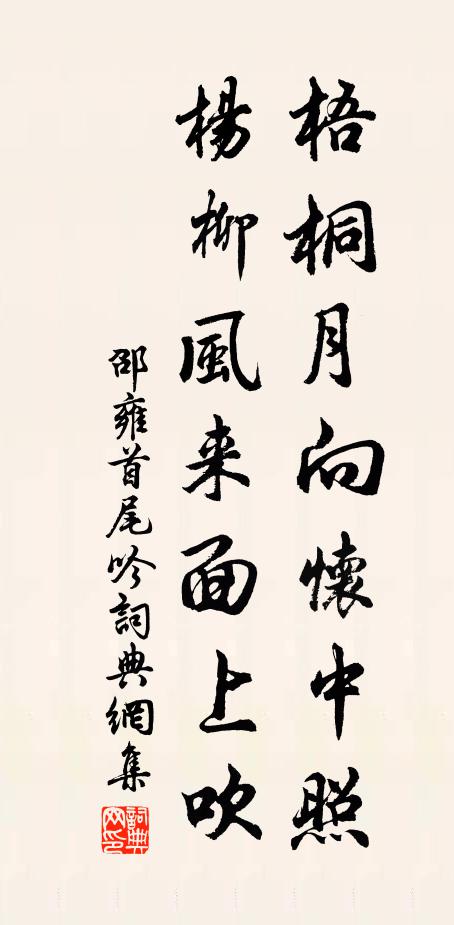 梧桐月向懷中照
楊柳風来面上吹
邵雍首尾吟詞典網集
詞典網印